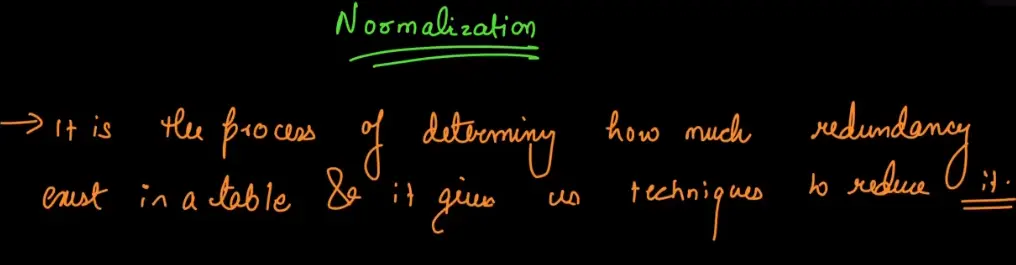 Normalization
→ It is the process of determing how much redundancy
exist in a table & it gives us techniques to reduce it.